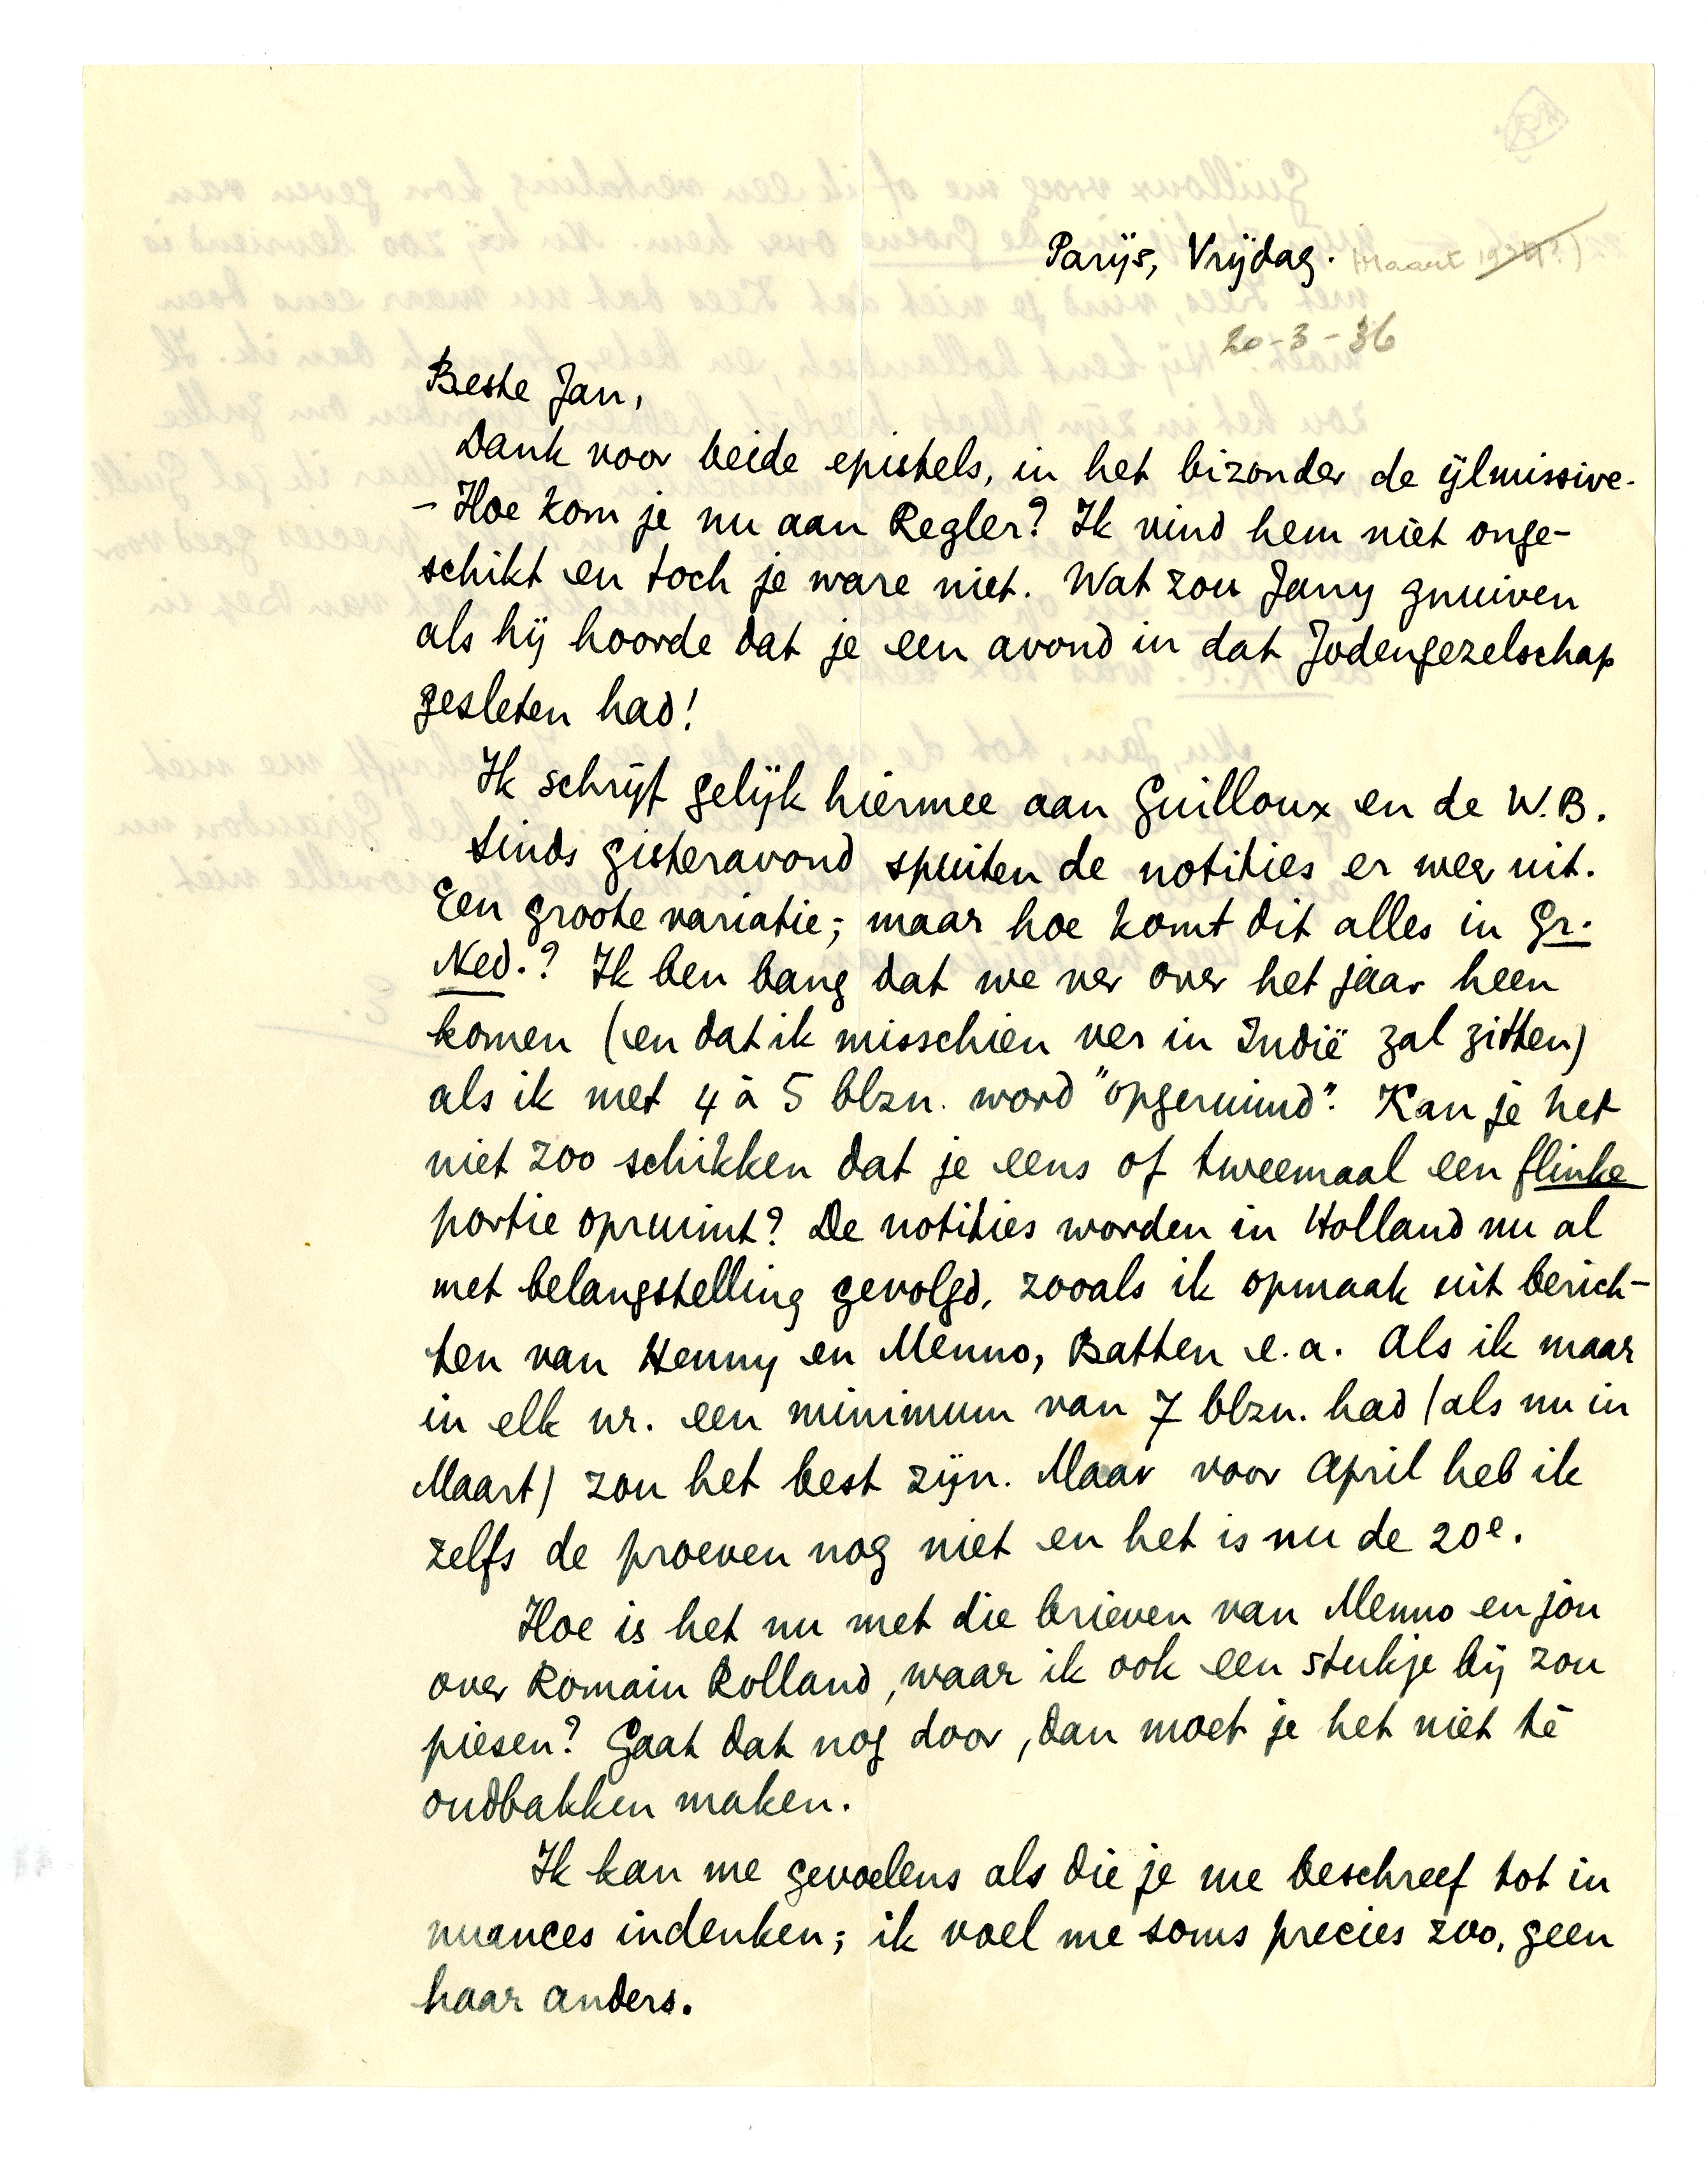 Parijs, Vrijdag. Maart 1934?)
20-3-36
Beste Jan,
Dank voor beide epistels, in het bizonder de ijlmissive.
- Hoe kom je nu aan Regler? Ik vind hem niet onge-
schikt en toch je ware niet. Wat zou Jany gnuiven
als hij hoorde dat je een avond in dat Jodengezelschap
gesleten had!
Ik schrijf gelijk hiermee aan Guilloux en de W.B.
Sinds gisteravond spuiten de notities er weer uit.
Een groote variatie; maar hoe komt dit alles in Gr.
Ned.? Ik ben bang dat we ver over het jaar heen
komen (en dat ik misschien ver in Indië zal zitten)
als ik met 4 à 5 blzn. word "opgeruimd". Kan je het
niet zoo schikken dat je eens of tweemaal een flinke
portie opruimt? De notities worden in Holland nu al
met belangstelling gevolgd, zooals ik opmaak uit berich-
ten van Henny en Menno, Batten e.a. Als ik maar
in elk nr. een minimum van 7 blzn. had (als nu in
Maart) zou het best zijn. Maar voor April heb ik
zelfs de proeven nog niet en het is nu de 20e.
Hoe is het nu met die brieven van Menno en jou
over Romain Rolland, waar ik ook een stukje bij zou
piesen? Gaat dat nog door, dan moet je het niet té
oudbakken maken.
Ik kan me gevoelens als die je me beschreef tot in
nuances indenken; ik voel me soms precies zoo, geen
haar anders.